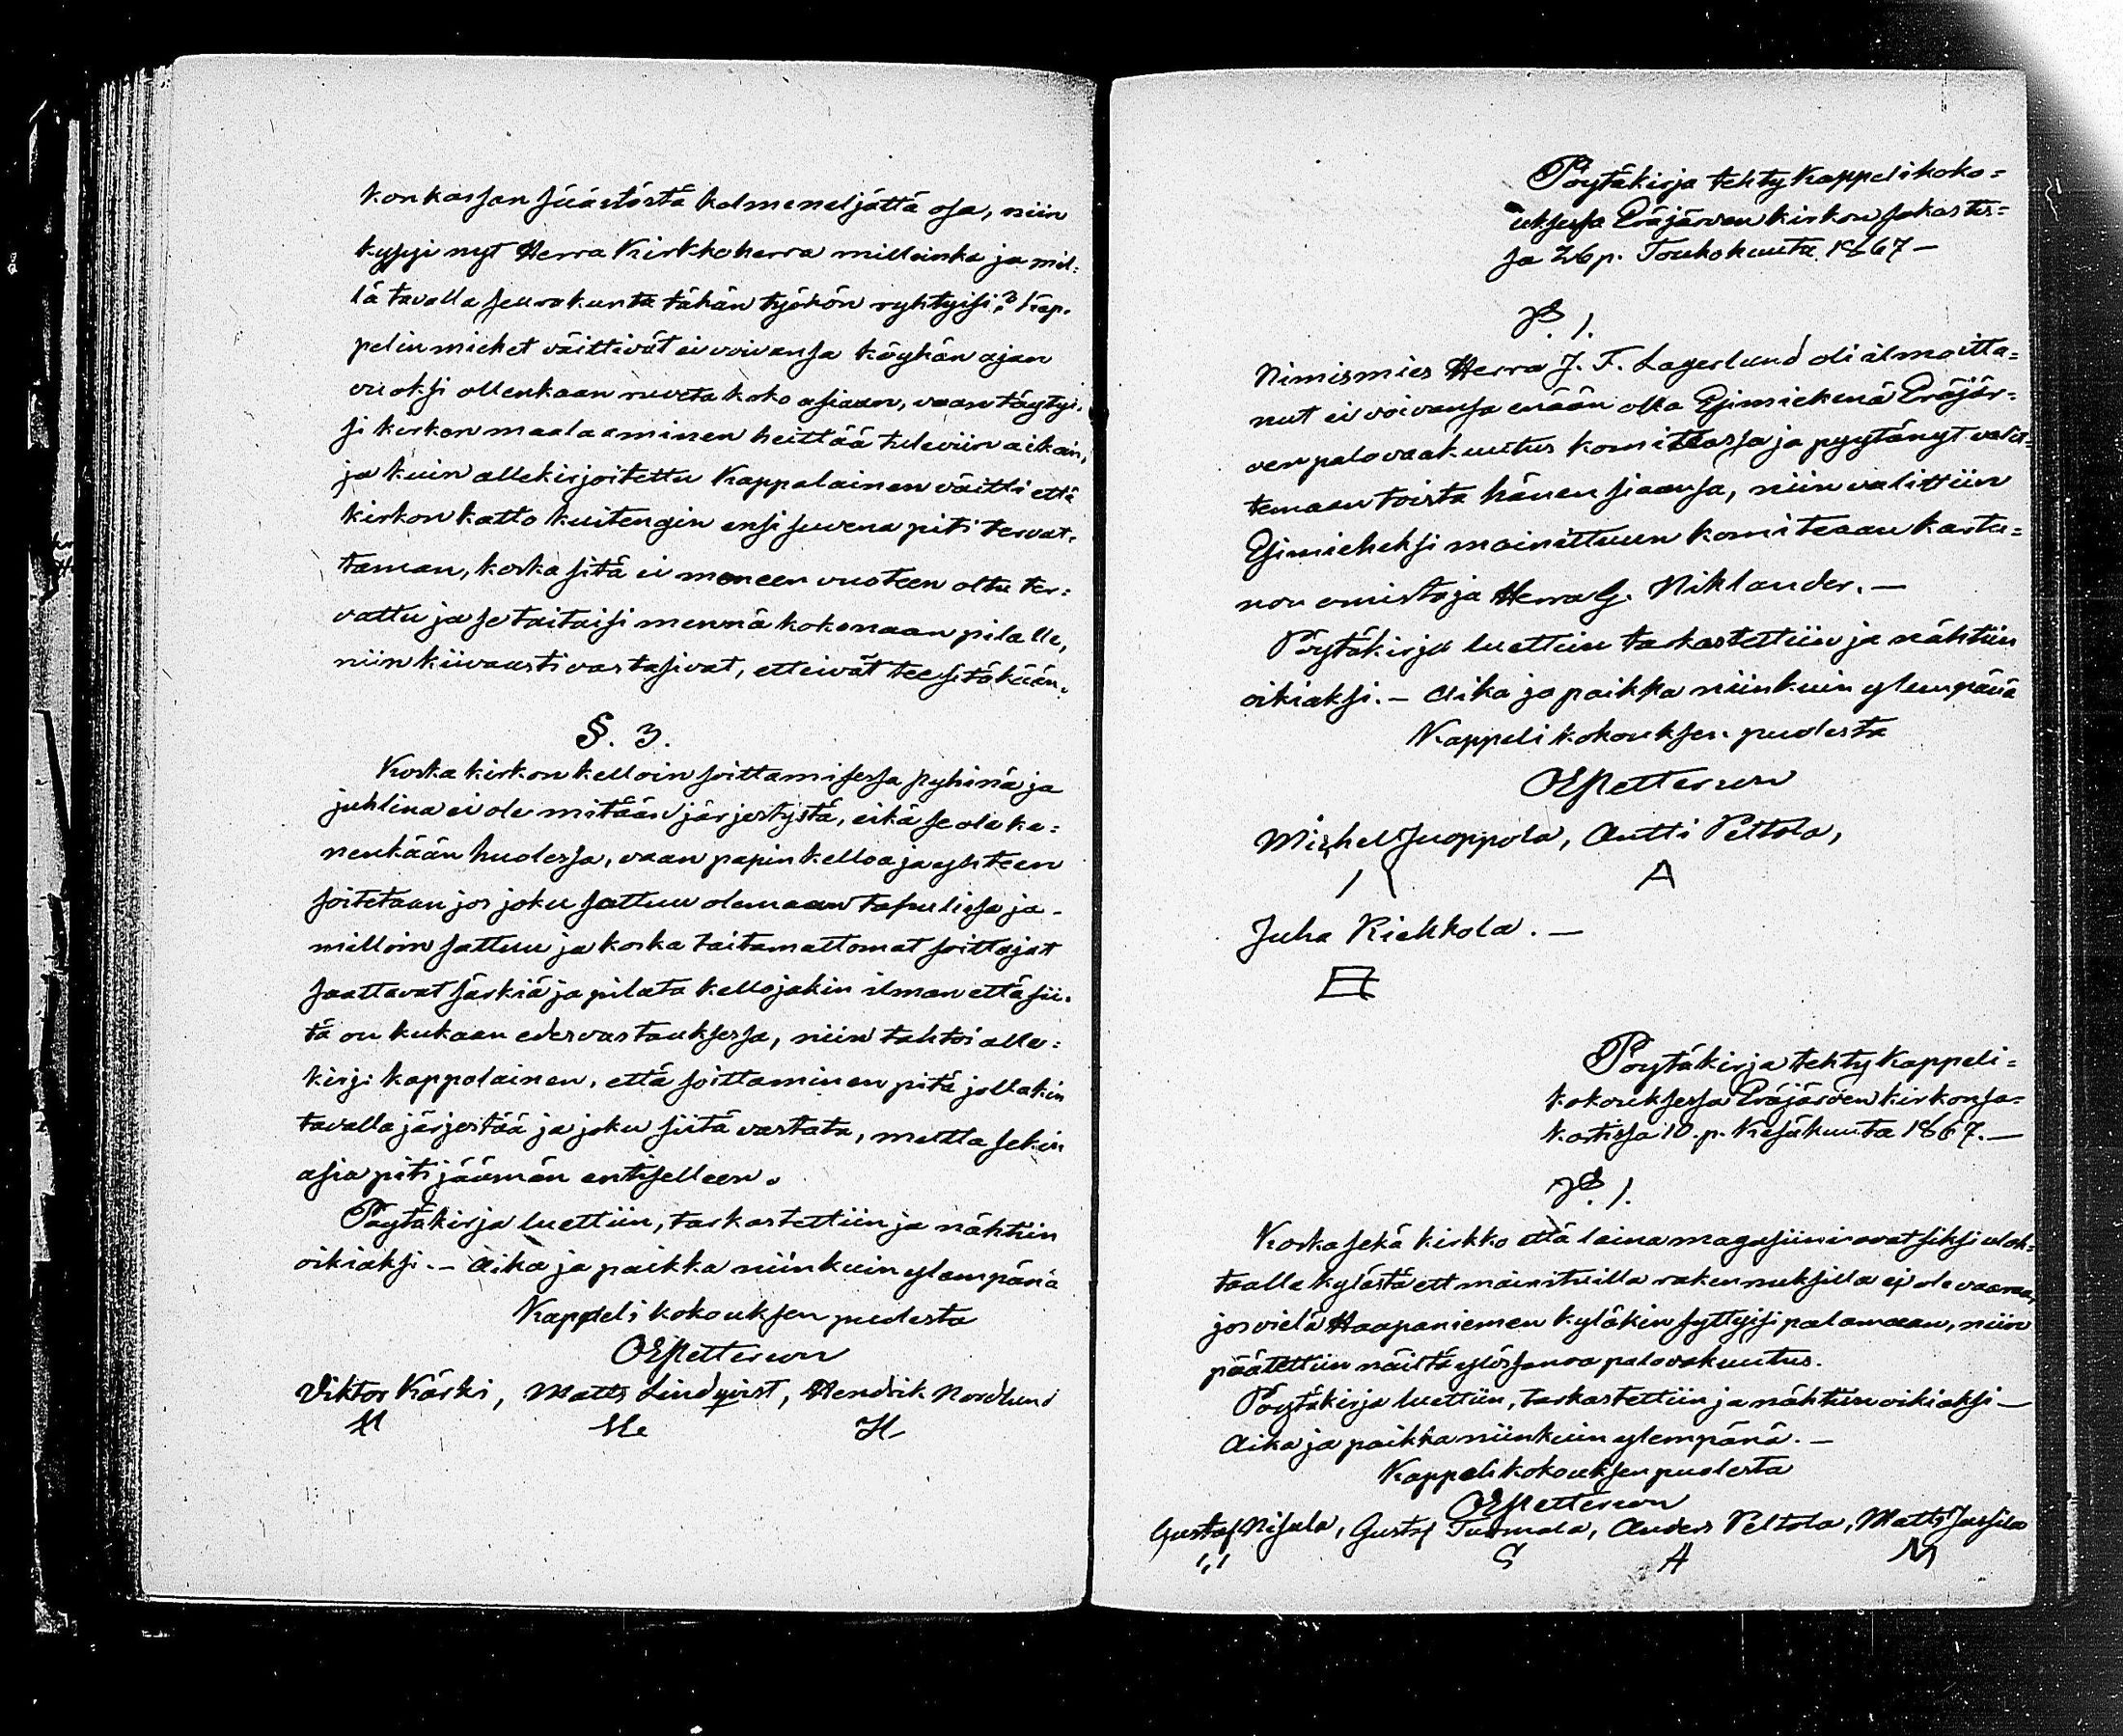 kon kassan säästöstä kolmeneljättä osa, niin
kysyi nyt Herra Kirkkoherra milloinka ja mil:
lä tavalla seurakunta tähän työhön ryhtyisi? Kap-
pelin miehet väittivät ei voivansa köyhän ajan
vuoksi ollenkaan ruveta koko asiaan, vaan täytyi-
si kirkon maalaaminen heittää tuleviin aikain,
ja kuin allekirjoitettu Kappalainen väitti että
kirkon katto kuitengin ensi suvena piti tervat-
taman, koska sitä ei moneen vuoteen oltu ter:
vattu ja se taitaisi mennä kokonaan pilalle,
niin kiivaasti vastasivat, etteivät tee sitäkään.
§. 3.
Koska kirkon kelloin soittamisessa pyhinä ja
juhlina ei ole mitään järjestystä, eikä se ole ke:
nenkään huolessa, vaan papin kelloa ja yhteen
soitetaan jos joku sattuu olemaan tapulissa ja
milloin sattuu ja koska taitamattomat soittajat
saattavat särkiä ja pilata kellojakin ilman että sii-
tä on kukaan edesvastauksessa, niin tahtoi alle:
kirj: kappalainen, että soittaminen pitä jollakin
tavalla järjestää ja joku siitä vastata, mutta sekin
asia piti jäämän entiselleen.
Pöytäkirja luettiin, tarkastettiin ja nähtiin
oikiaksi. – Aika ja paikka niinkuin ylempänä
Kappeli kokouksen puolesta
OEPetterson
Viktor Kärki, Matts Lindqvist, Hendrik Nordlund
M. H.
Pöytäkirja tehty Kappelikoko=
uksessa Eräjärven kirkon sakastis=
sa 26 p. Toukokuuta 1867 –
§. 1.
Nimismies Herra J. F. Lagerlund oli ilmoitta=
nut ei voivansa enään olla Esimiehenä Eräjär=
ven palovaakuutus komiteassa ja pyytänyt valit=
temaan toista hänen siaansa, niin valittiin
Esimieheksi mainittuun komiteaan kartu=
non omistaja Herra G. Niklander. –
Pöytäkirja luettiin tarkastettiin ja nähtiin
oikiaksi. – Aika ja paikka niinkuin ylempänä
Kappeli kokouksen puolesta
OEPetterson
Michel Juoppola, Antti Peltola,
A
Juha Riehkola. –
Pöytäkirja tehty Kappeli=
kokouksessa Eräjärven kirkon sa=
kastissa 10. p. Kesäkuuta 1867. –
§. 1.
Koska sekä kirkko että laina magasiini ovat siksi uloh=
taalla kylästä ett mainituilla rakennuksilla ej ole vaaraa,
jos vielä Haapaniemen kyläkin syttyisi palamaan, niin
päätettiin näiltä ylössanoa palovakuutus.
Pöytäkirja luettiin, tarkastettiin ja nähtiin oikiaksi –
Aika ja paikka niinkuin ylempänä. –
Kappelikokouksen puolesta
OEPetterson
Gustaf Nisula, Gustaf Tuomala, Anders Peltola, Matts Jussila
G A M